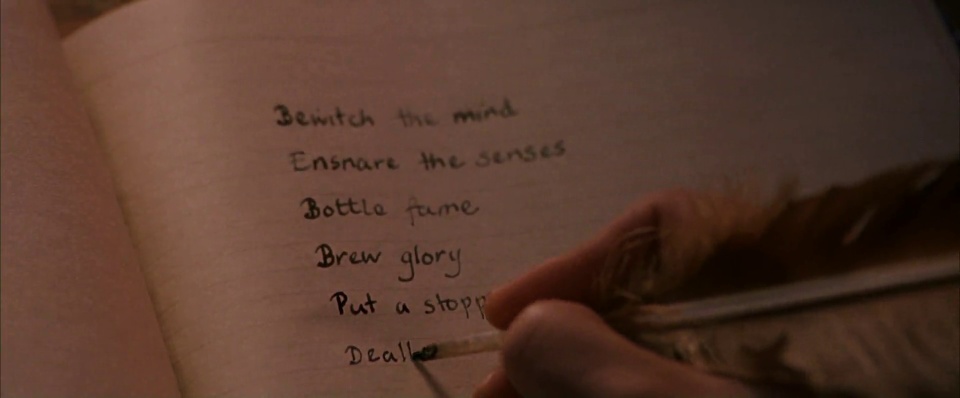 Bewitch the mind
Ensnare the senses
Bottle fame
Brew glory
Put a stopp